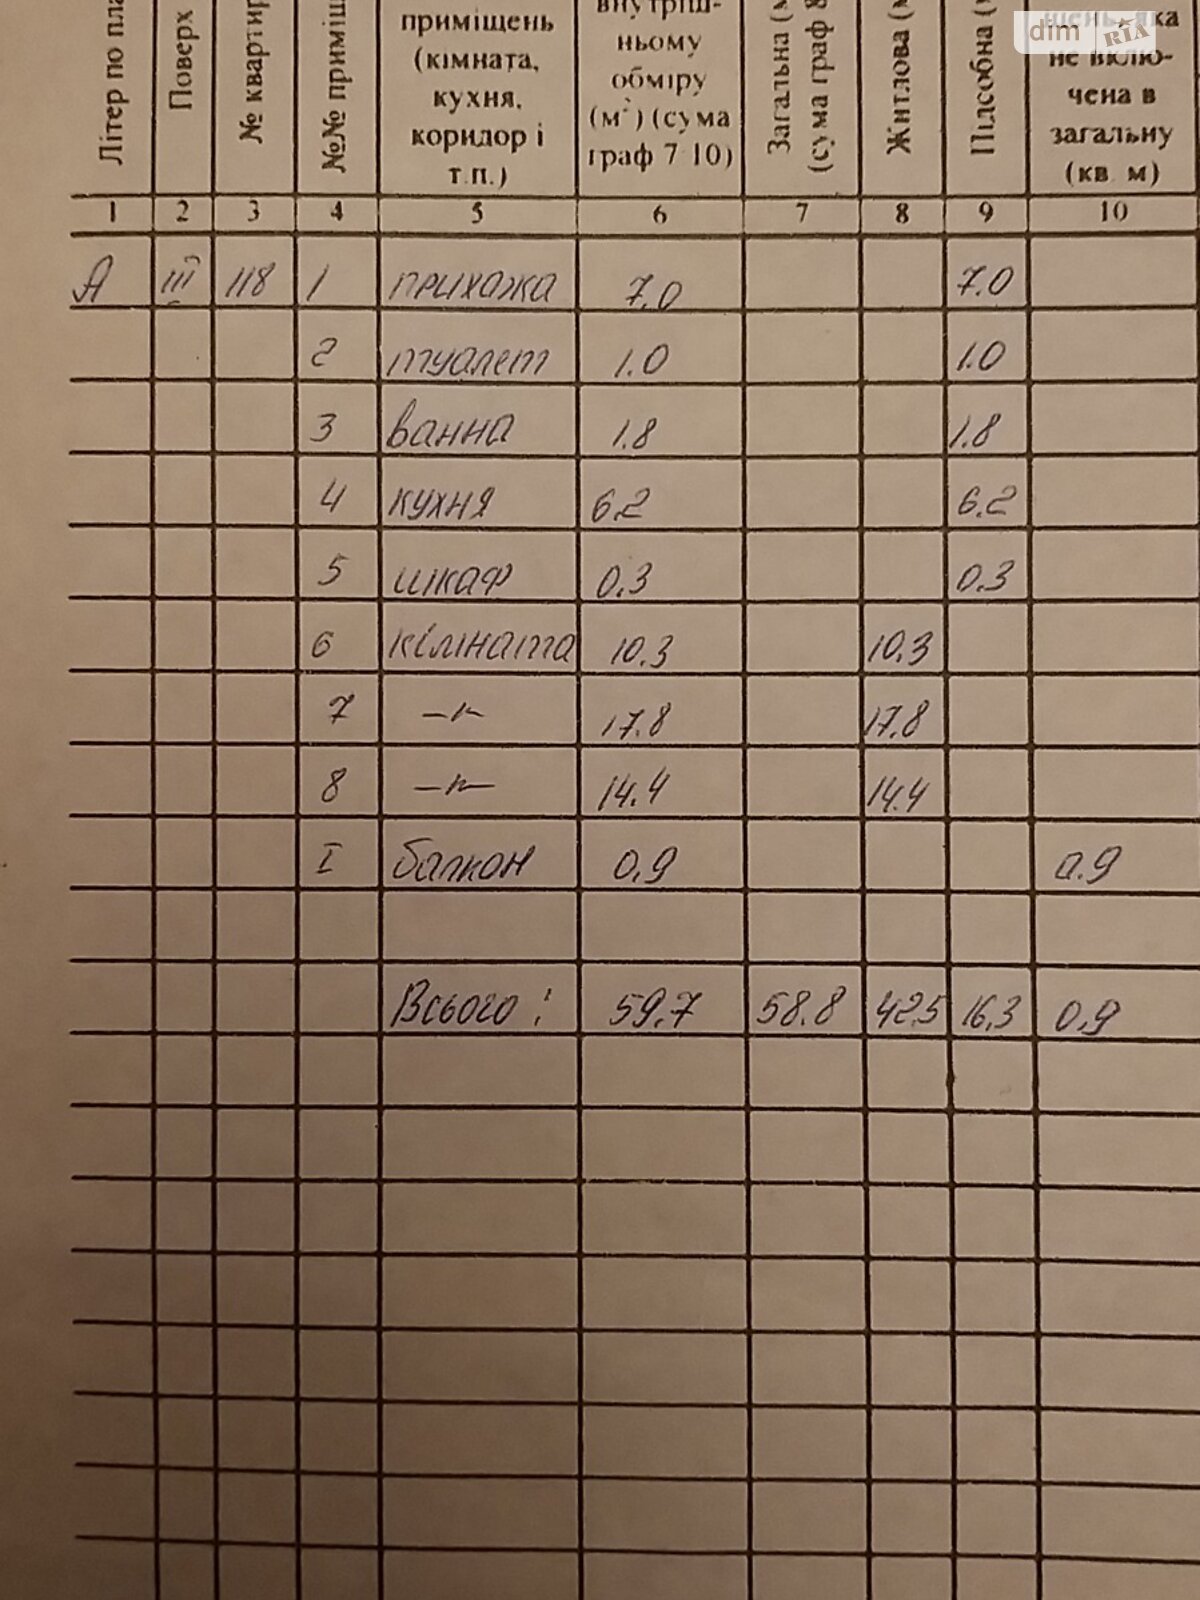 Літер по пла
Поверх
№ квартир
№№ приміщ
приміщень
(кімната,
кухня,
коридор і
т.п.)
внутріш-
ньому
обміру
(м²) (сума
граф 7 10)
Загальна (м
(сума граф 8
Житлова (м
Підсобна (
щень, яка
не вклю-
чена в
загальну
(кв. м)
dim RIA
1 2 3 4 5 6 7 8 9 10
А III 118 1 прихожа 7.0 7.0
2 туалет 1.0 1.0
3 ванна 1.8 1.8
4 кухня 6.2 6.2
5 шкаф 0.3 0.3
6 кімната 10.3 10.3
7 —"— 17.8 17.8
8 —"— 14.4 14.4
I балкон 0,9 0.9
Всього: 59.7 58.8 42.5 16.3 0,9